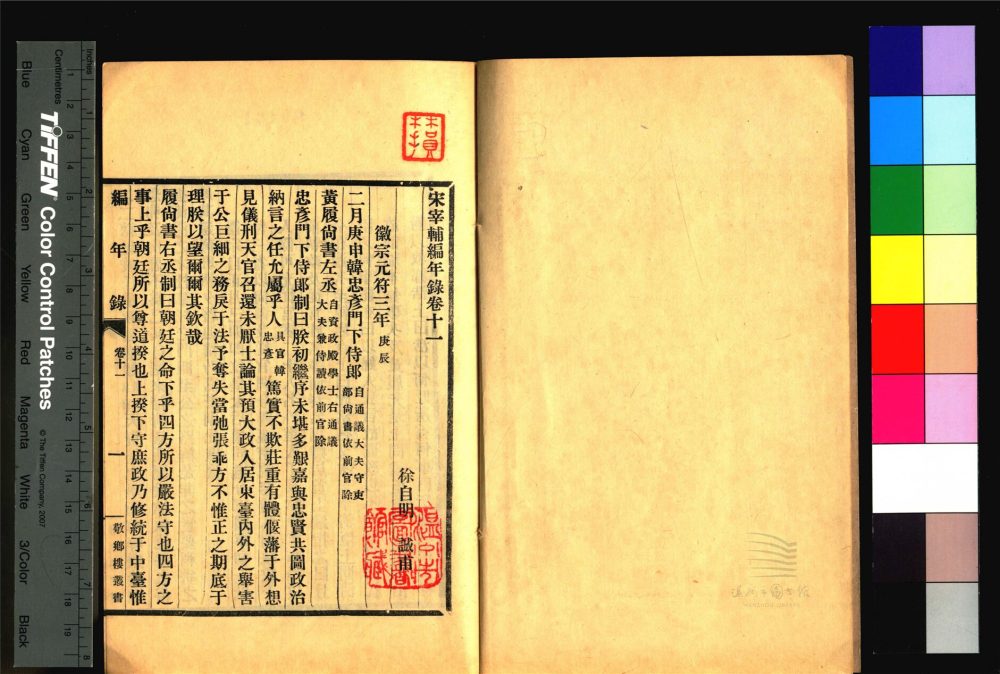 宋宰輔編年錄卷十一
徐自明 誠甫
徽宗元符三年 庚辰
二月庚申韓忠彥門下侍郎 自通議大夫守吏部尚書依前官除
黃履尚書左丞 自資政殿學士右通議大夫兼侍讀依前官除
忠彥門下侍郎制曰朕初繼序未堪多艱嘉與忠賢共圖政治
納言之任允屬乎人 具官韓忠彥 篤實不欺莊重有體偃藩于外想
見儀刑天官召還未厭士論其預大政入居東臺內外之舉害
于公巨細之務戾于法予奪失當弛張乖方不惟正之期底于
理朕以望爾爾其欽哉
履尚書右丞制曰朝廷之命下乎四方所以嚴法守也四方之
事上乎朝廷所以尊道揆也上揆下守庶政乃修統于中臺惟
編年錄 卷十一 一 敬鄉樓叢書
溫州市圖書館
WENZHOU LIBRARY
Inches
Centimetres
TIFFEN Color Control Patches
© The Tiffen Company, 2007
Blue Cyan Green Yellow Red Magenta White 3/Color Black